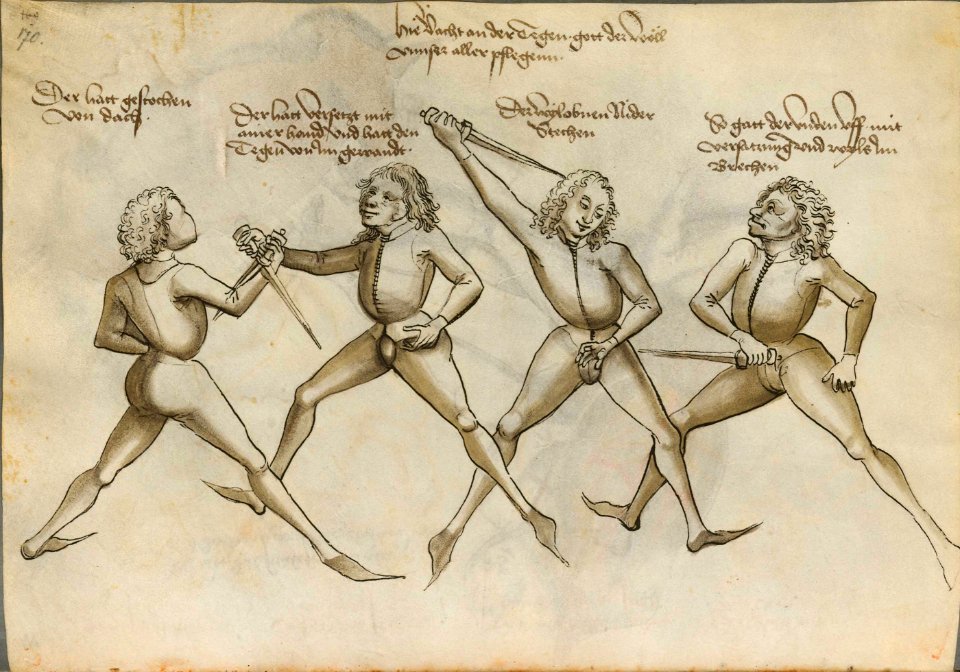 170.
hie vacht an der Tegen · gott der wöll
vnnser aller pflegenn.
Der hatt gestochen
von dach.
Der hatt versetzt mit
ainer hand vnd hatt den
Tegen vmm gewandt.
Der wyl obnen Nider
Stechen
So gatt der unden uff mit
versatzung vnd wyls Im
Brechen